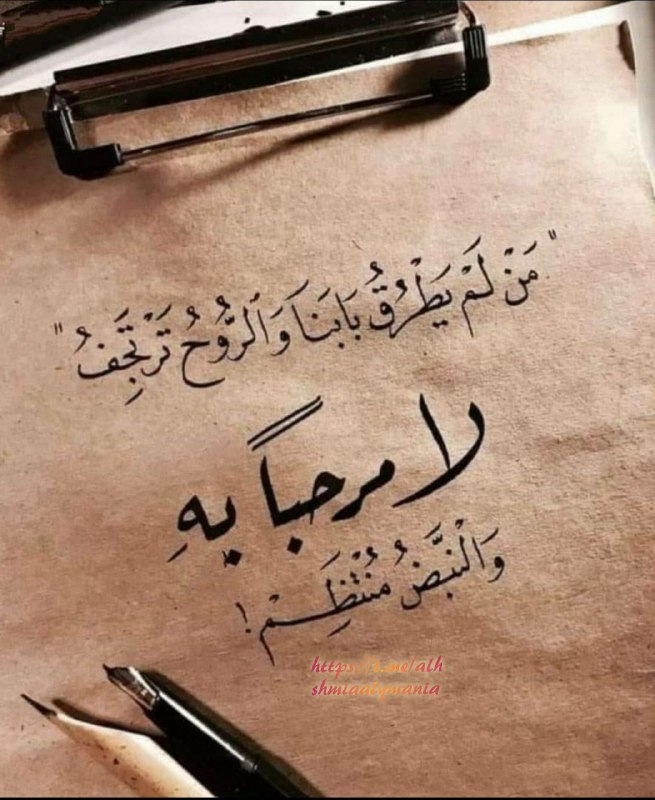 "مَنْ لَمْ يَطْرُقُ بَابَنَا وَالرُّوْحُ تَرْتَجِفُ"
لا مرحباً بِهِ
وَالْنَبَّضُ مُنْتَظِمْ!
shmiaatymania